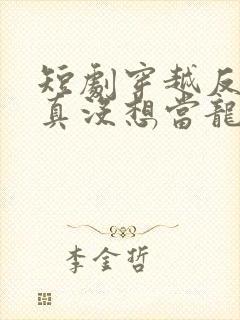 短劇穿越反
真没想當龍
李金哲